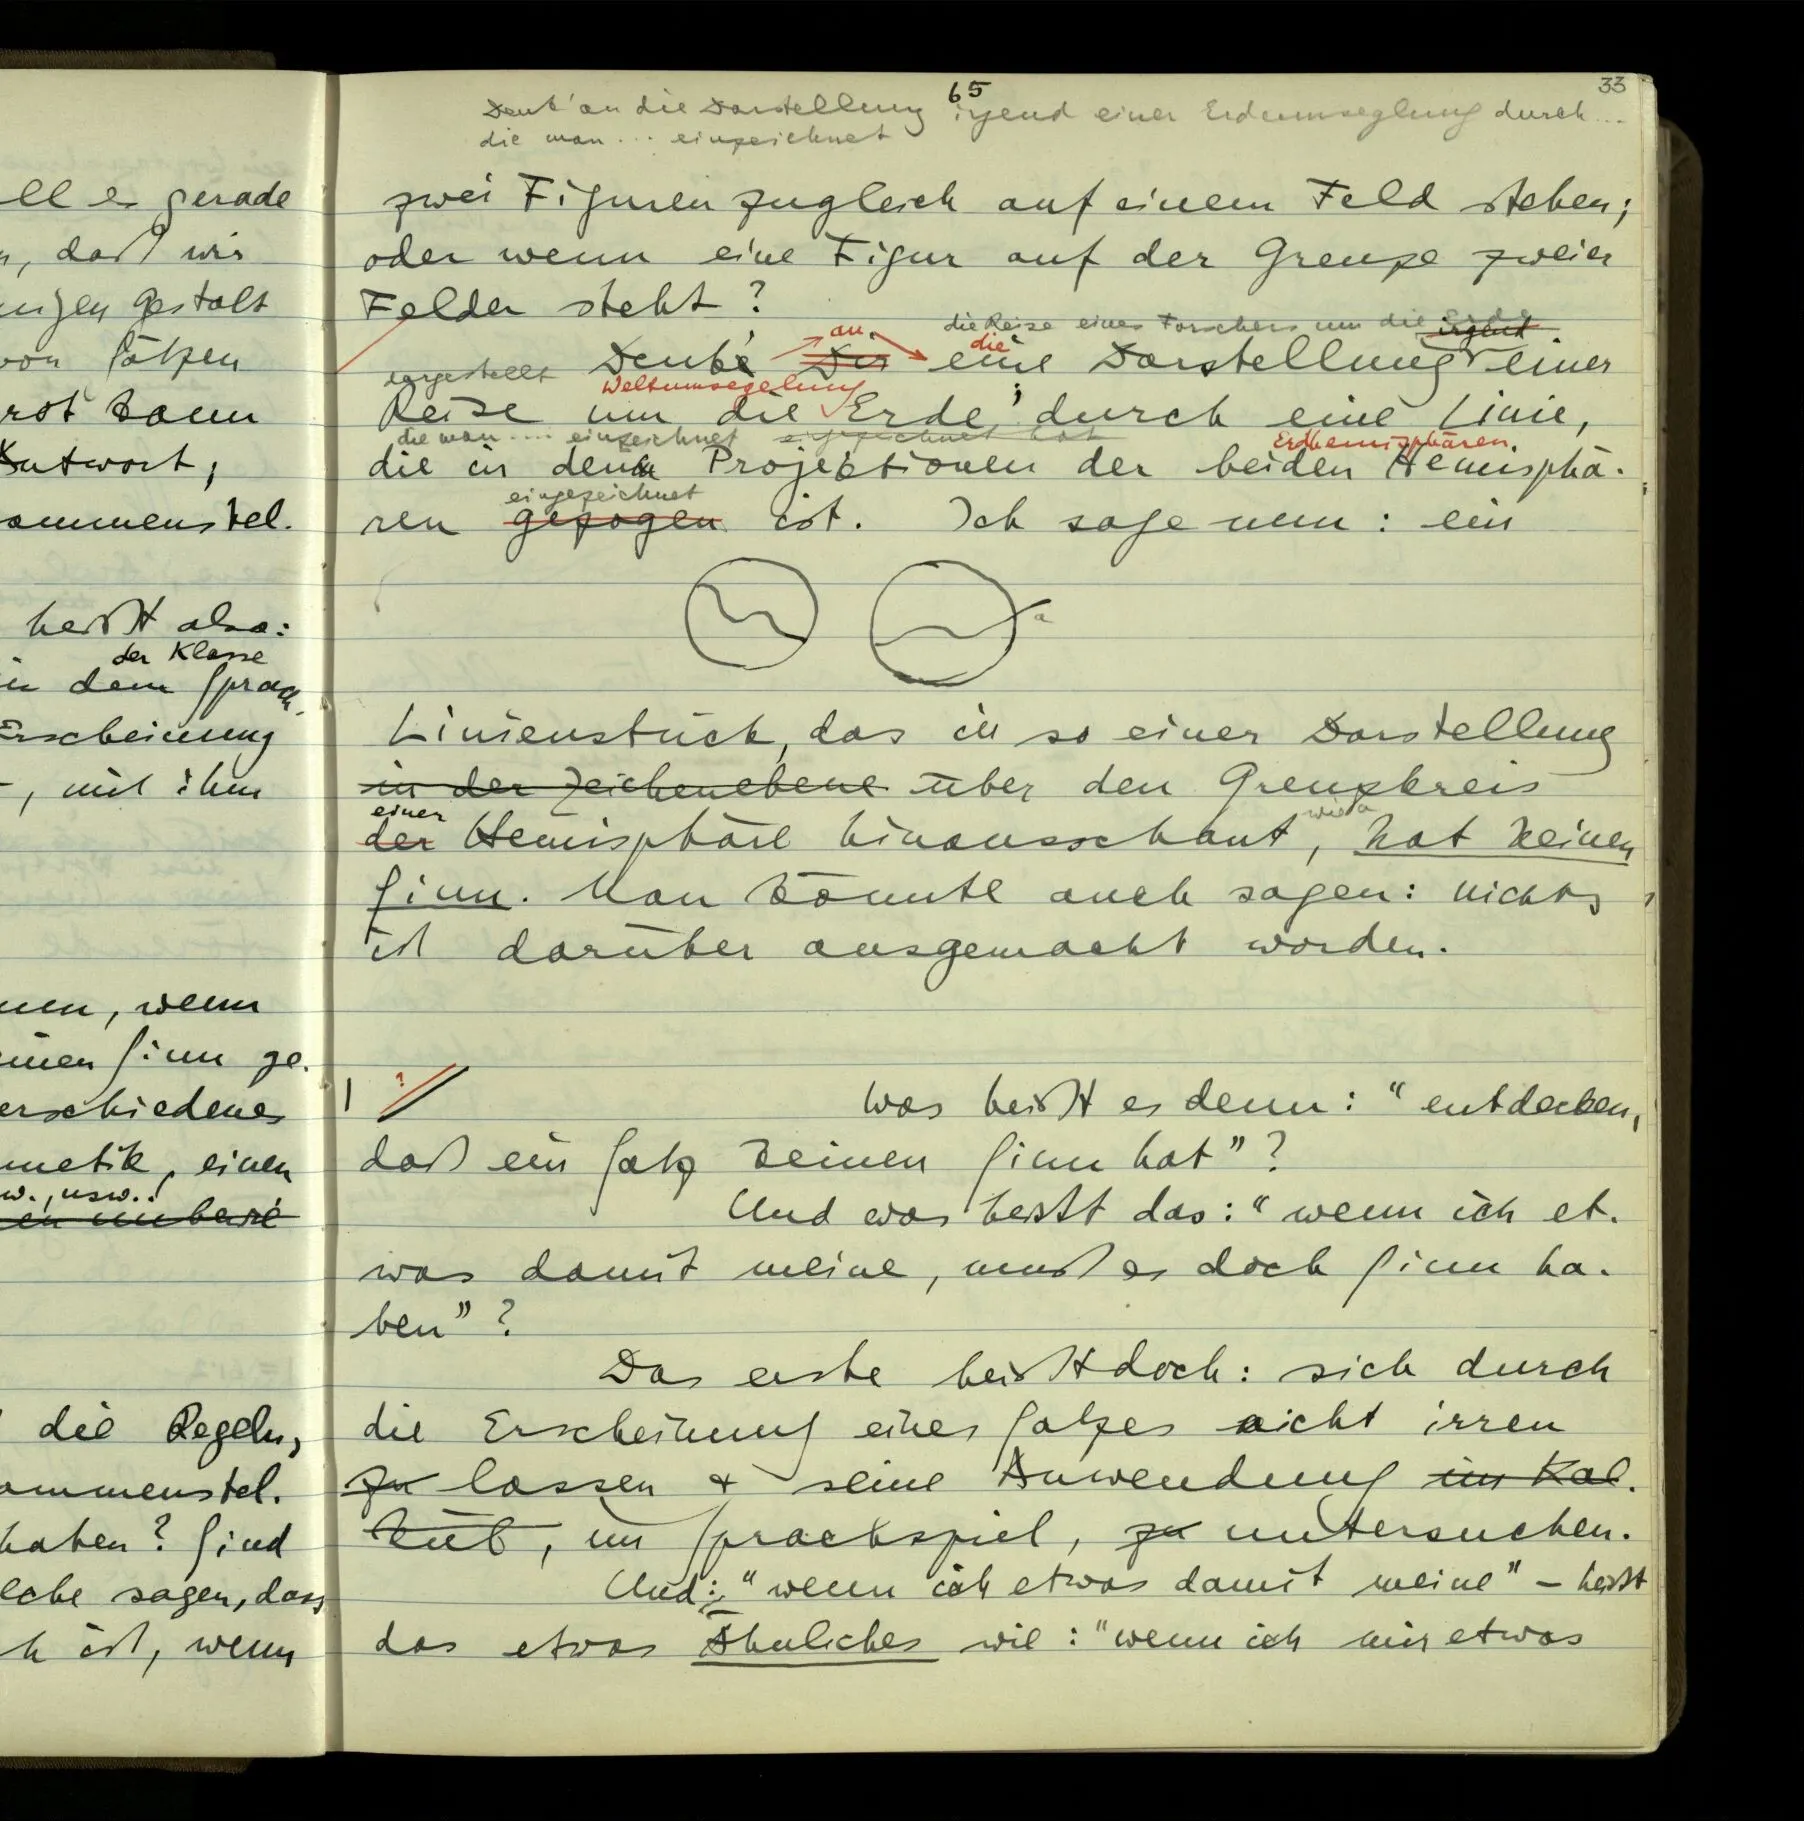 ll er gerade
n, daß wir
Gestalt
von Sätzen
erst dann
Antwort,
zusammenstel-
heißt also:
der Klasse
in dem Sprach-
Erscheinung
, mit ihm
, wenn
einen Sinn ge-
erschiedenes
metik, einen
w., usw..
die Regeln,
ammenstel-
haben? Sind
lche sagen, dass
h ist, wenn
65
33
Denk' an die Darstellung irgend einer Erdumseglung durch...
die man ... einzeichnet
zwei Figuren zugleich auf einem Feld stehen;
oder wenn eine Figur auf der Grenze zweier
Felder steht?
die Reise eines Forschers um die Erde irgend
an die
Denke Dir eine Darstellung einer
vorgestellt Weltumsegelung
Reise um die Erde, durch eine Linie,
die man .... einzeichnet eingezeichnet hat Erdhemisphären
die in den Projektionen der beiden Hemisphä-
eingezeichnet
ren gezogen ist. Ich sage nun: ein
a
Linienstück, das in so einer Darstellung
in der Zeichenebene über den Grenzkreis
einer wie a
der Hemisphäre hinausschaut, hat keinen
Sinn. Man könnte auch sagen: nichts
ist darüber ausgemacht worden.
| ? //
Was heißt es denn: “entdecken,
daß ein Satz keinen Sinn hat”?
Und was heißt das: “wenn ich et-
was damit meine, muß es doch Sinn ha-
ben”?
Das erste heißt doch: sich durch
die Erscheinung eines Satzes nicht irren
zu lassen & seine Anwendung im Kal-
kül, im Sprachspiel, zu untersuchen.
Und: “wenn ich etwas damit meine” – heißt
das etwas Ähnliches wie: “wenn ich mir etwas